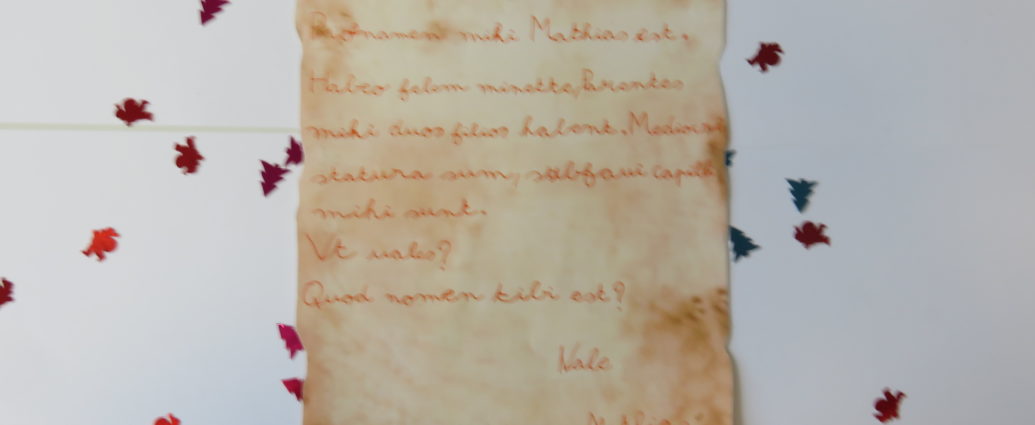 Praenomen mihi Mathias est.
Habeo felem minette, Parentes
mihi duos filios habent. Mediocri
statura sum, subflavi capilli
mihi sunt.
Vt uales?
Quod nomen tibi est?
Vale